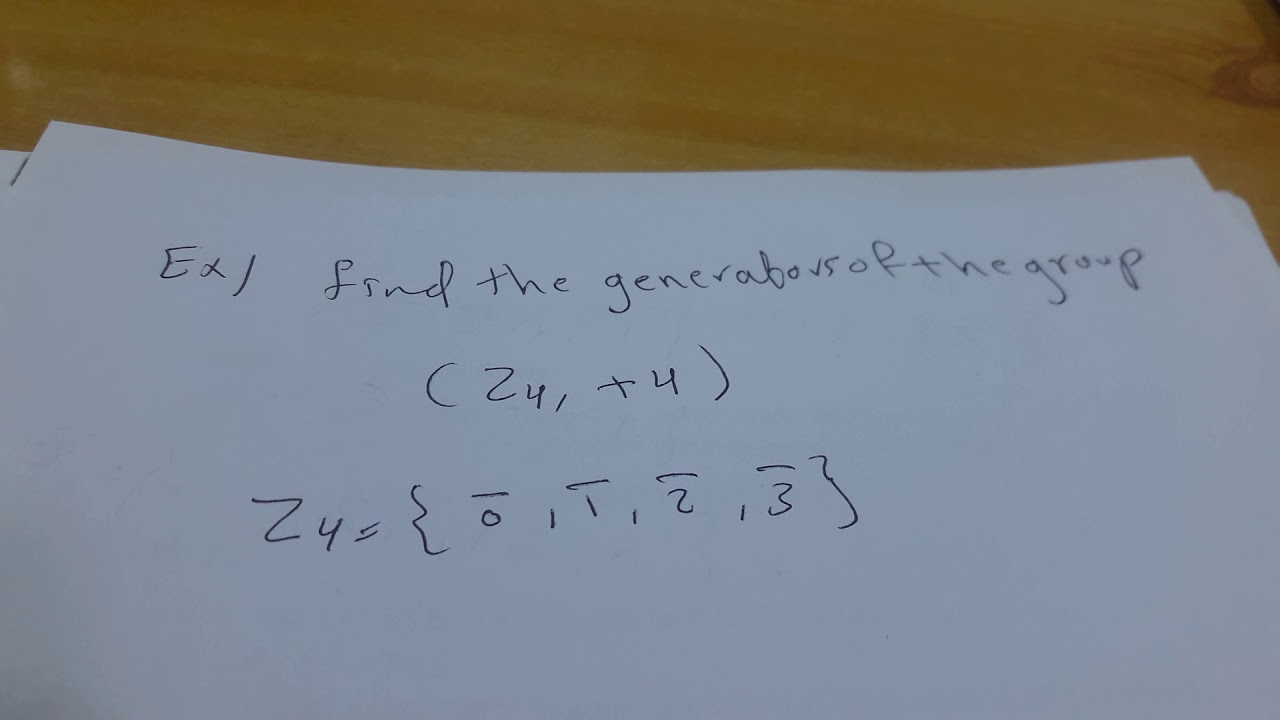 Ex/ find the generators of the group
(Z₄, +₄)
Z₄ = { 0̅ , 1̅ , 2̅ , 3̅ }